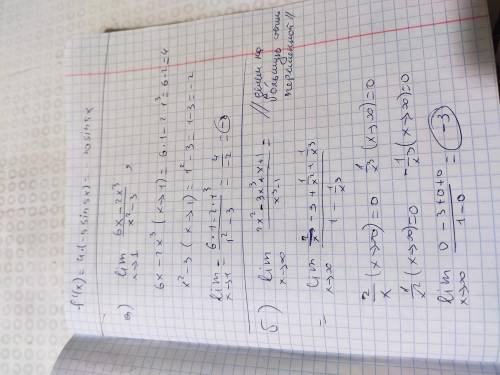 f'(x) = 4·(-5 sin 5x) = -20 sin 5x
а) lim x→1 (6x - 2x³)/(x² - 3) ;
6x - 2x³ (x→1) = 6·1 - 2·1³ = 6 - 2 = 4
x² - 3 (x→1) = 1² - 3 = 1 - 3 = -2
lim x→1 = (6·1 - 2·1³)/(1² - 3) = 4/-2 = -2
б) lim x→∞ (2x² - 3x³ + x + 1)/(x³ - 1) = // делим на большую
переменной //
= lim x→∞ (2/x - 3 + 1/x² + 1/x³)/(1 - 1/x³)
2/x (x→∞) = 0 1/x³ (x→∞) = 0
1/x² (x→∞) = 0 -1/x³ (x→∞) = 0
lim x→∞ (0 - 3 + 0 + 0)/(1 - 0) = -3